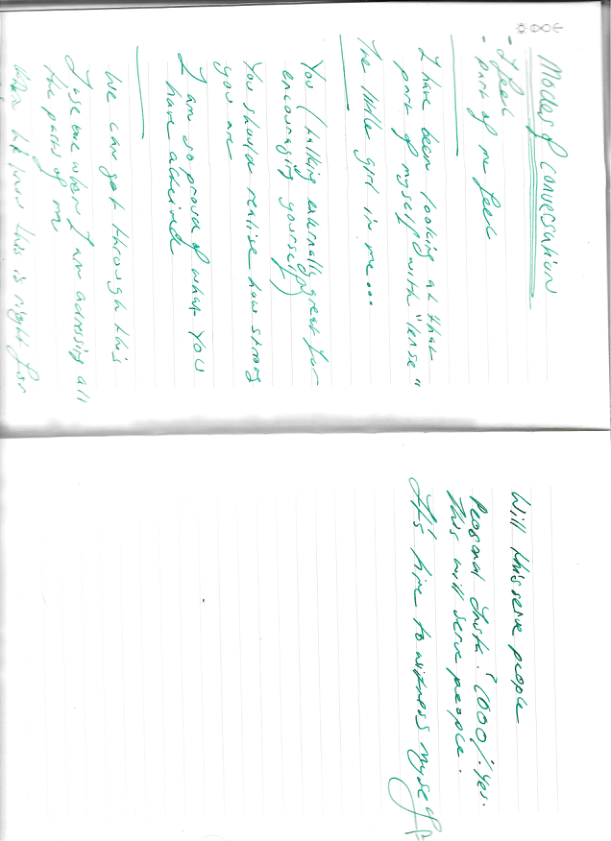 Modes of conversation
- I feel
- part of me feel
I have been looking at that
part of myself with "lense"
The little girl in me...
You (talking externally great for
encouraging yourself)
You should realise how strong
you are
I am so proud of what You
have achieved
We can get through this
I use we when I am adressing all
the parts of me
this is right for
Will this serve people
Personal Insta. 1000%. Yes.
This will serve people.
It's time to witness myself